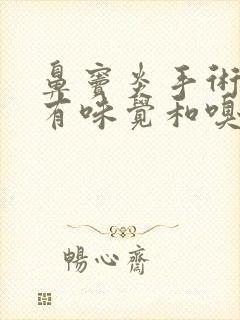 鼻竇炎手術
有味覺和嗅
暢心齋